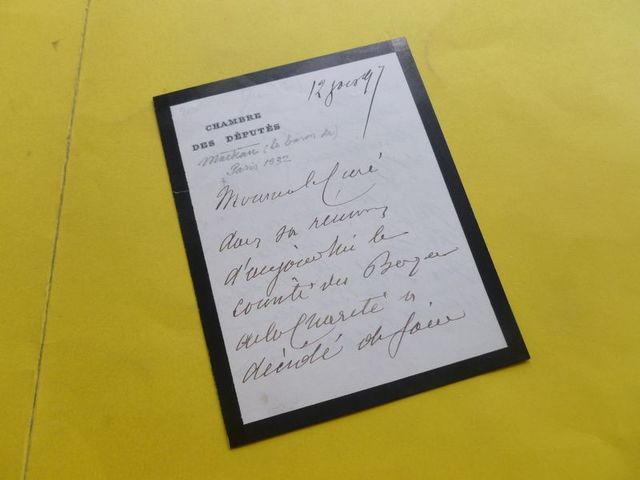 12 juin 97
CHAMBRE
DES DÉPUTÉS
Mackau (le baron de)
Paris 1832
Monsieur le Curé
dans sa reunion
d'aujourd'hui le
comité du Bazar
de la Charité a
décidé de faire